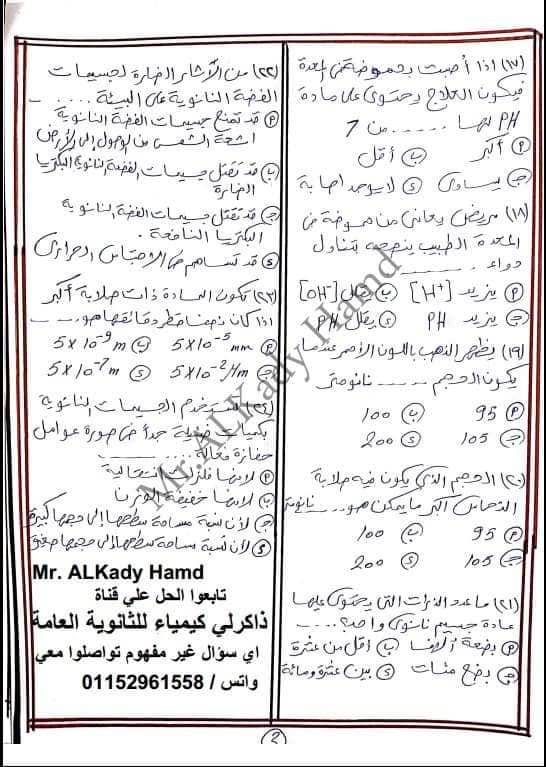 (١٧) اذا أصبت بحموضة في المعدة
فيكون العلاج يحتوي على مادة
PH لها ....... من 7
P أكبر ب أقل
ج يساوى د لا يوجد اجابة
(١٨) مريض يعانى من حموضة فى
المعدة الطبيب ينصحه بتناول
دواء ........
P يزيد [H+] ب يقلل [OH-]
ج يزيد PH د يقلل PH
(١٩) يظهر الذهب باللون الأحمر عندما
يكون الحجم ...... نانومتر
P 95 ب 100
ج 105 د 200
(٢٠) الحجم الذى يكون فيه صلابة
النحاس أكبر ما يمكن هو .... نانومتر
P 95 ب 100
ج 105 د 200
(٢١) ما عدد الذرات التى يحتوى عليها
عادة جسيم نانوى واحد؟ ......
P بضعة آلاف ب أقل من عشرة
ج بضع مئات د بين عشرة ومائة
(٢٢) من الآثار الضارة لجسيمات
الفضة النانوية على البيئة ......
P قد تمنع جسيمات الفضة النانوية
اشعة الشمس من الوصول إلى الأرض
ب قد تقتل جسيمات الفضة النانوية البكتريا
الضارة
ج قد تقتل جسيمات الفضة النانوية
البكتريا النافعة.
د قد تساهم فى الاحتباس الحرارى
(٢٣) تكون المادة ذات صلابة أكبر
اذا كان نصف قطر دقائقها هو......
P 5 X 10-5 mm ب 5 X 10-9 m
ج 5 X 10-2 μm د 5 X 10-7 m
(٢٤) تستخدم الجسيمات النانوية
بكميات ضئيلة جداً فى صورة عوامل
حفازة فعالة......
P لانها فلزات انتقالية
ب لانها خفيفة الوزن
ج لأن نسبة مساحة سطحها إلى حجمها كبيرة
د لأن نسبة مساحة سطحها إلى حجمها صغيرة
Mr. ALKady Hamd
تابعوا الحل علي قناة
ذاكرلي كيمياء للثانوية العامة
اي سؤال غير مفهوم تواصلوا معي
واتس / 01152961558
Mr.ALKady Hamd
2